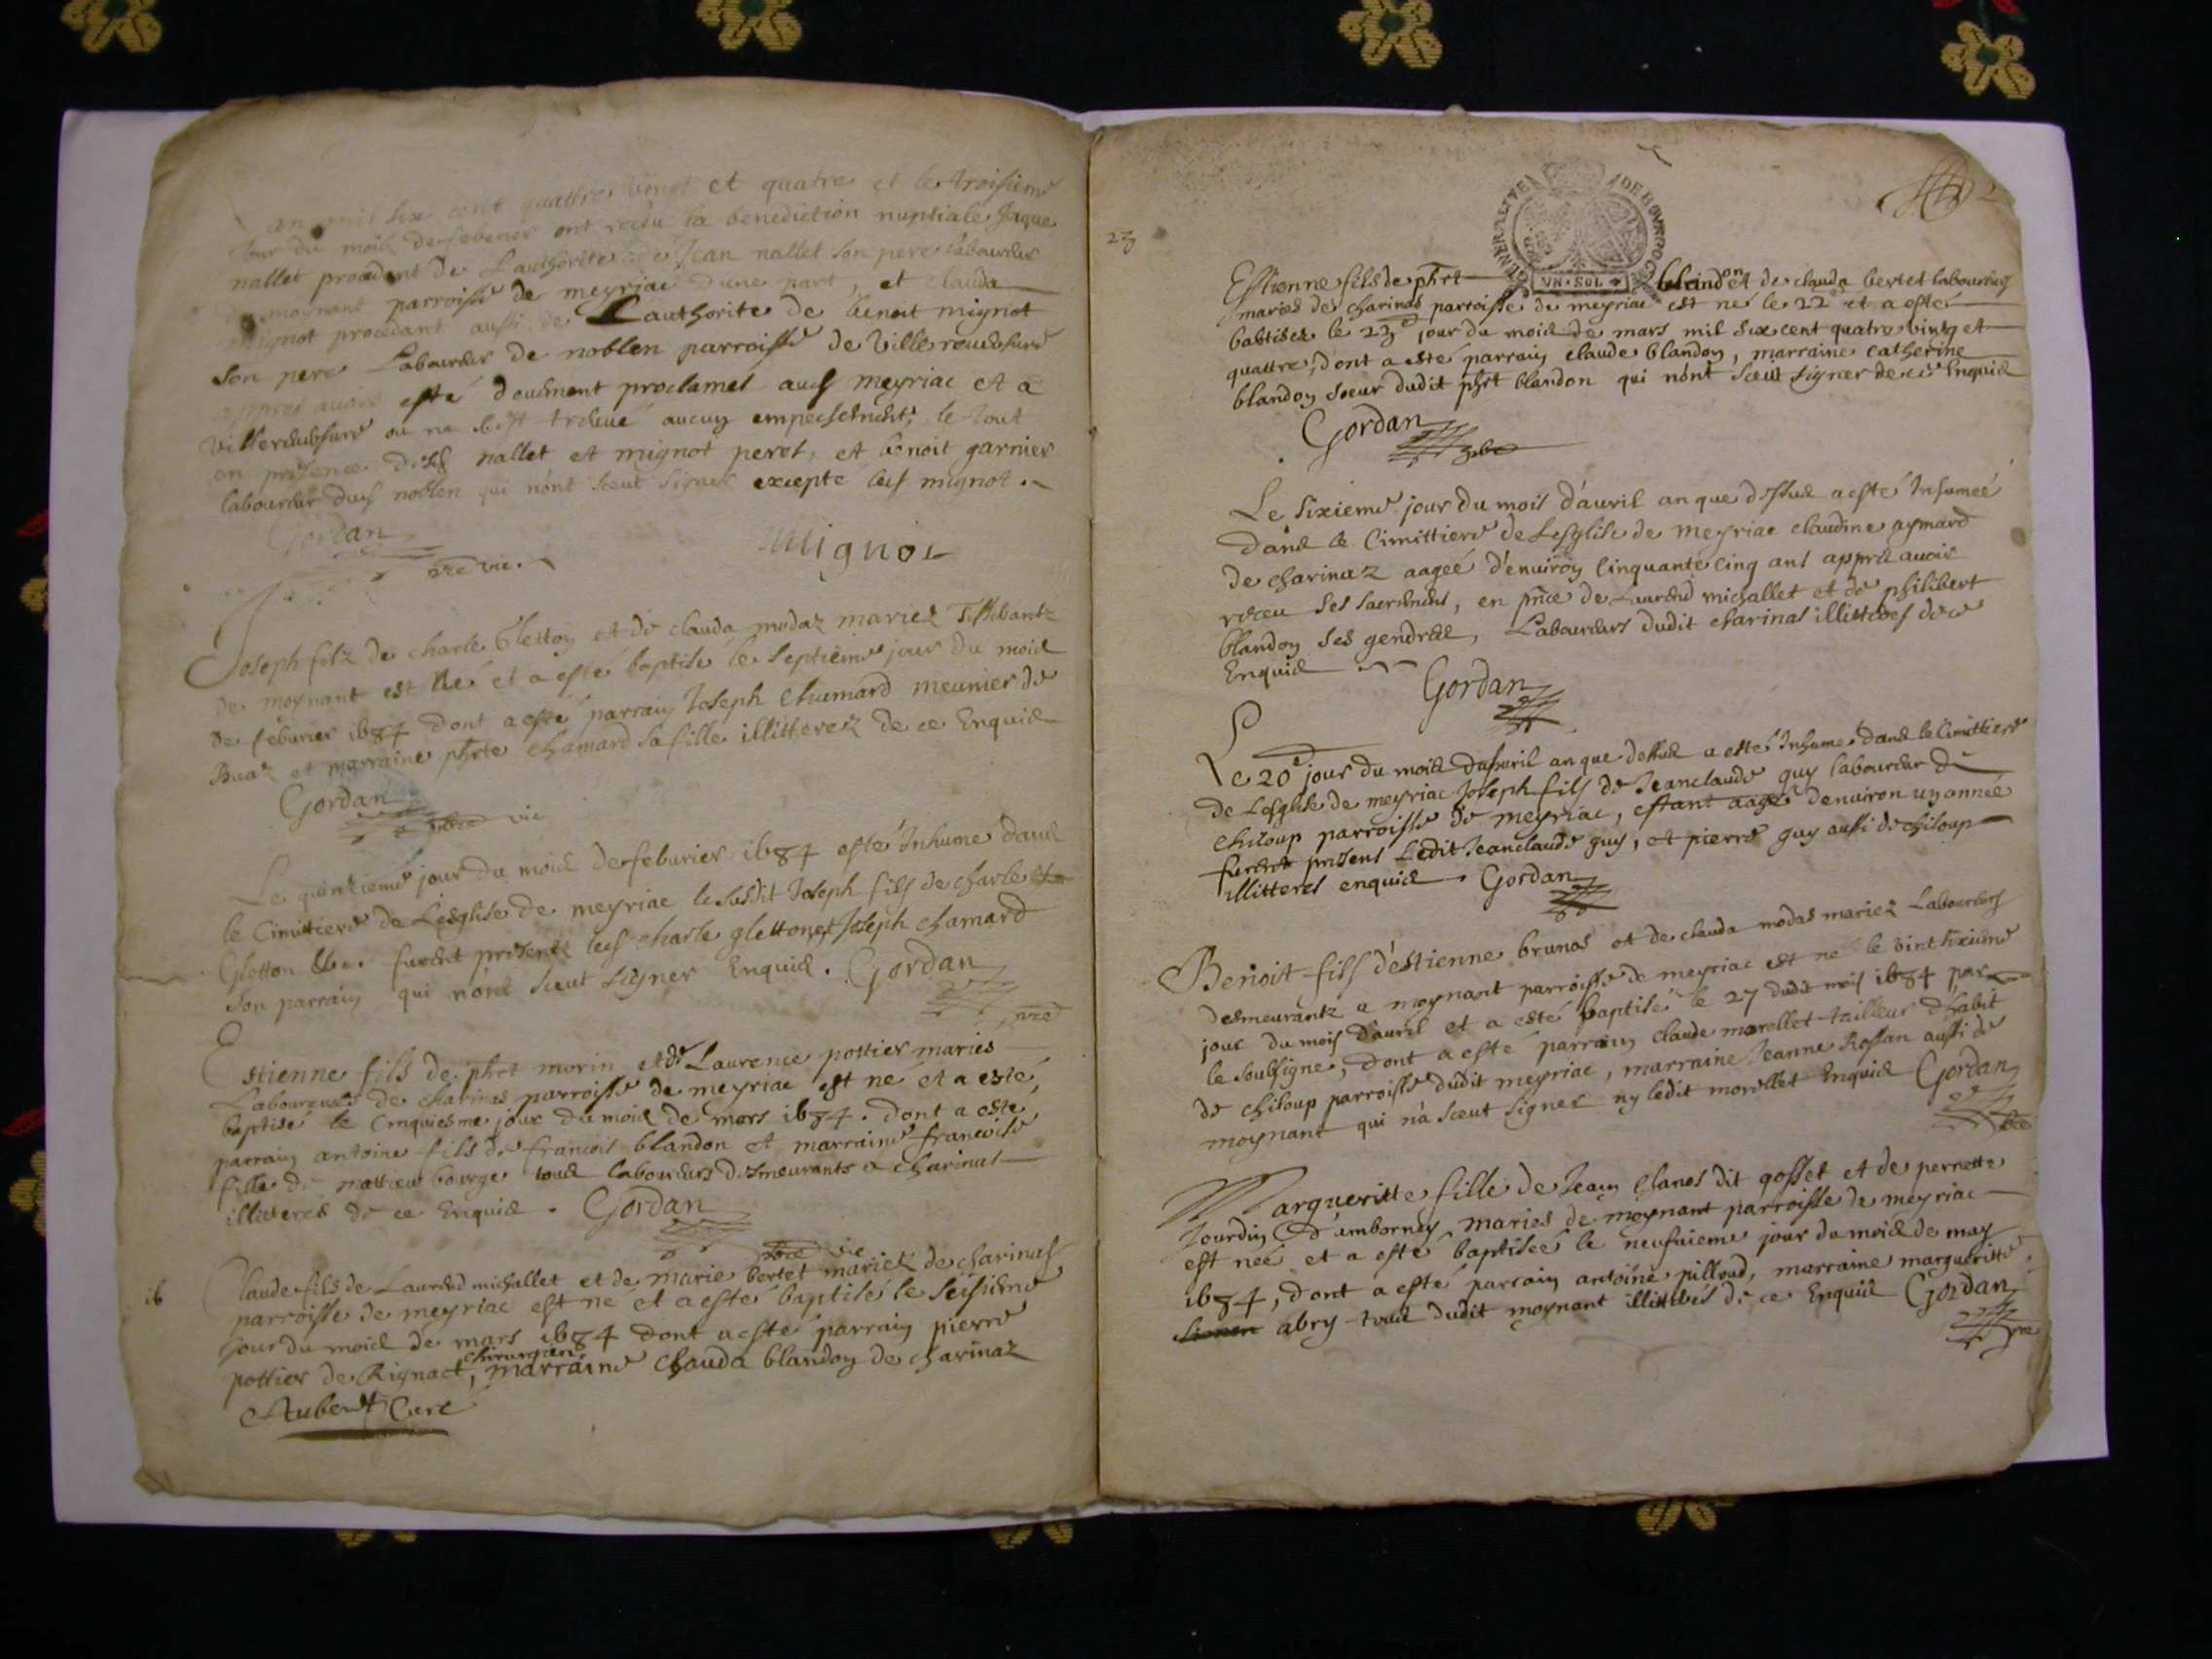 an mil six cent quattre vingt et quatre et le troisieme
jour du mois de feburier ont receu la benediction nuptiale Jaque
nallet procedant de L'authorité de Jean nallet son pere laboureur
de moynant parroisse de meyriac d'une part, et clauda
mignot procedant aussi de L'authorite de benoit mignot
son pere Laboureur de noblen parroisse de Villereuersure
appres auoir esté deuëment proclamés aud meyriac et a
Villereuersure ou ne s'est treuué aucun empeschement, le tout
en presence desd nallet et mignot peres, et benoit garnier
laboureur dud noblen qui n'ont sceut signer excepté led mignot.
Gordan
vic.
Mignot
Joseph filz de charle Gletton et de clauda modaz mariez
de moynant est né et a esté baptisé le septieme jour du mois
de feburier 1684 dont a esté parrain Joseph Chamard meunier de
Buaz et marraine phrte chamard sa fille illitterez de ce Enquis
Gordan
vic
Le quinzieme jour du mois de feburier 1684 esté Inhumé dans
le Cimittiere de Lesglise de meyriac le susdit Joseph fils de charle
Gletton furent presentz led charle gletton et Joseph chamard
son parrain qui n'ont sceut signer Enquis. Gordan
Estienne fils de phrt morin et de Laurence pottier maries
Laboureurs de charinas parroisse de meyriac est né et a esté
baptisé le Cinquiesme jour du mois de mars 1684. dont a esté
parrain antoine fils de francois blandon et marraine francoise
fille de mattieu bourge tous laboureurs demeurants a charinas
illitteres de ce Enquis. Gordan
vic
16
Claude fils de Laurend michallet et de marie bertet mariez de charinas
parroisse de meyriac est né et a esté baptisé le seisieme
jour du mois de mars 1684 dont a esté parrain pierre
chirurgien
pottier de Rignact, marraine clauda blandon de charinaz
Aubert Curé
GENERALITE DE BOURGOGNE
VN·SOL
23
Estienne fils de phrt blandon et de clauda bertet laboureurs
maries de charinas parroisse de meyriac est né le 22e et a esté
babtisez le 23e jour du mois de mars mil six cent quatre vintz et
quattre, dont a esté parrain claude blandon, marraine catherine
blandon soeur dudit phrt blandon qui n'ont sceut signer de ce Enquis
Gordan
Le sixieme jour du mois d'auril an que dessus a esté Inhumeé
dans le Cimittiere de Lesglise de meyriac claudine aymard
de charinaz aageé d'enuiron Cinquante cinq ans appres auoir
receu ses sacrements, en pnce de Laurend michallet et de philibert
blandon ses gendres, Laboureurs dudit charinas illitteres de ce
Enquis Gordan
Le 20e jour du mois d'auril an que dessus a esté Inhumé dans le Cimittiere
de Lesglise de meyriac Joseph fils de Jeanclaude guy laboureur de
chiloup parroisse de meyriac, estant aagé denuiron un anneé
furent presens Ledit Jeanclaude guy, et pierre guy aussi de chiloup
illitteres enquis. Gordan
Benoit fils d'estienne brunas et de clauda modas mariez Laboureurs
desmeurantz a moynant parroisse de meyriac est né le vint sixieme
jour du mois d'auril et a esté baptisé le 27 dudit mois 1684 par
le soubsigne, dont a esté parrain claude morellet tailleur d'habit
de chiloup parroisse dudit meyriac, marraine Jeanne Rossan aussi de
moynant qui n'a sceut signer ny ledit morellet Enquis Gordan
Margueritte fille de Jean Clanes dit gosset et de pernette
Jourdin d'ambornay maries de moynant parroisse de meyriac
est neé et a esté baptiseé le neufuieme jour du mois de may
1684, dont a esté parrain antoine pilloud, marraine margueritte
abry tous dudit moynant illitterés de ce Enquis Gordan